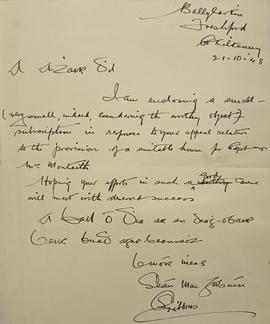 Ballylarkin
Freshford
Co Kilkenny
21-10-48
A Sid
I am enclosing a small
(very small, indeed, considering the worthy object)
subscription in response to your appeal relation
to the provision of a suitable house for Capt
Monteith
Hoping your efforts in such a good cause
will meet with deserved success
le
buaid agus beannact
Is mise
Seán Mac
Gibbons